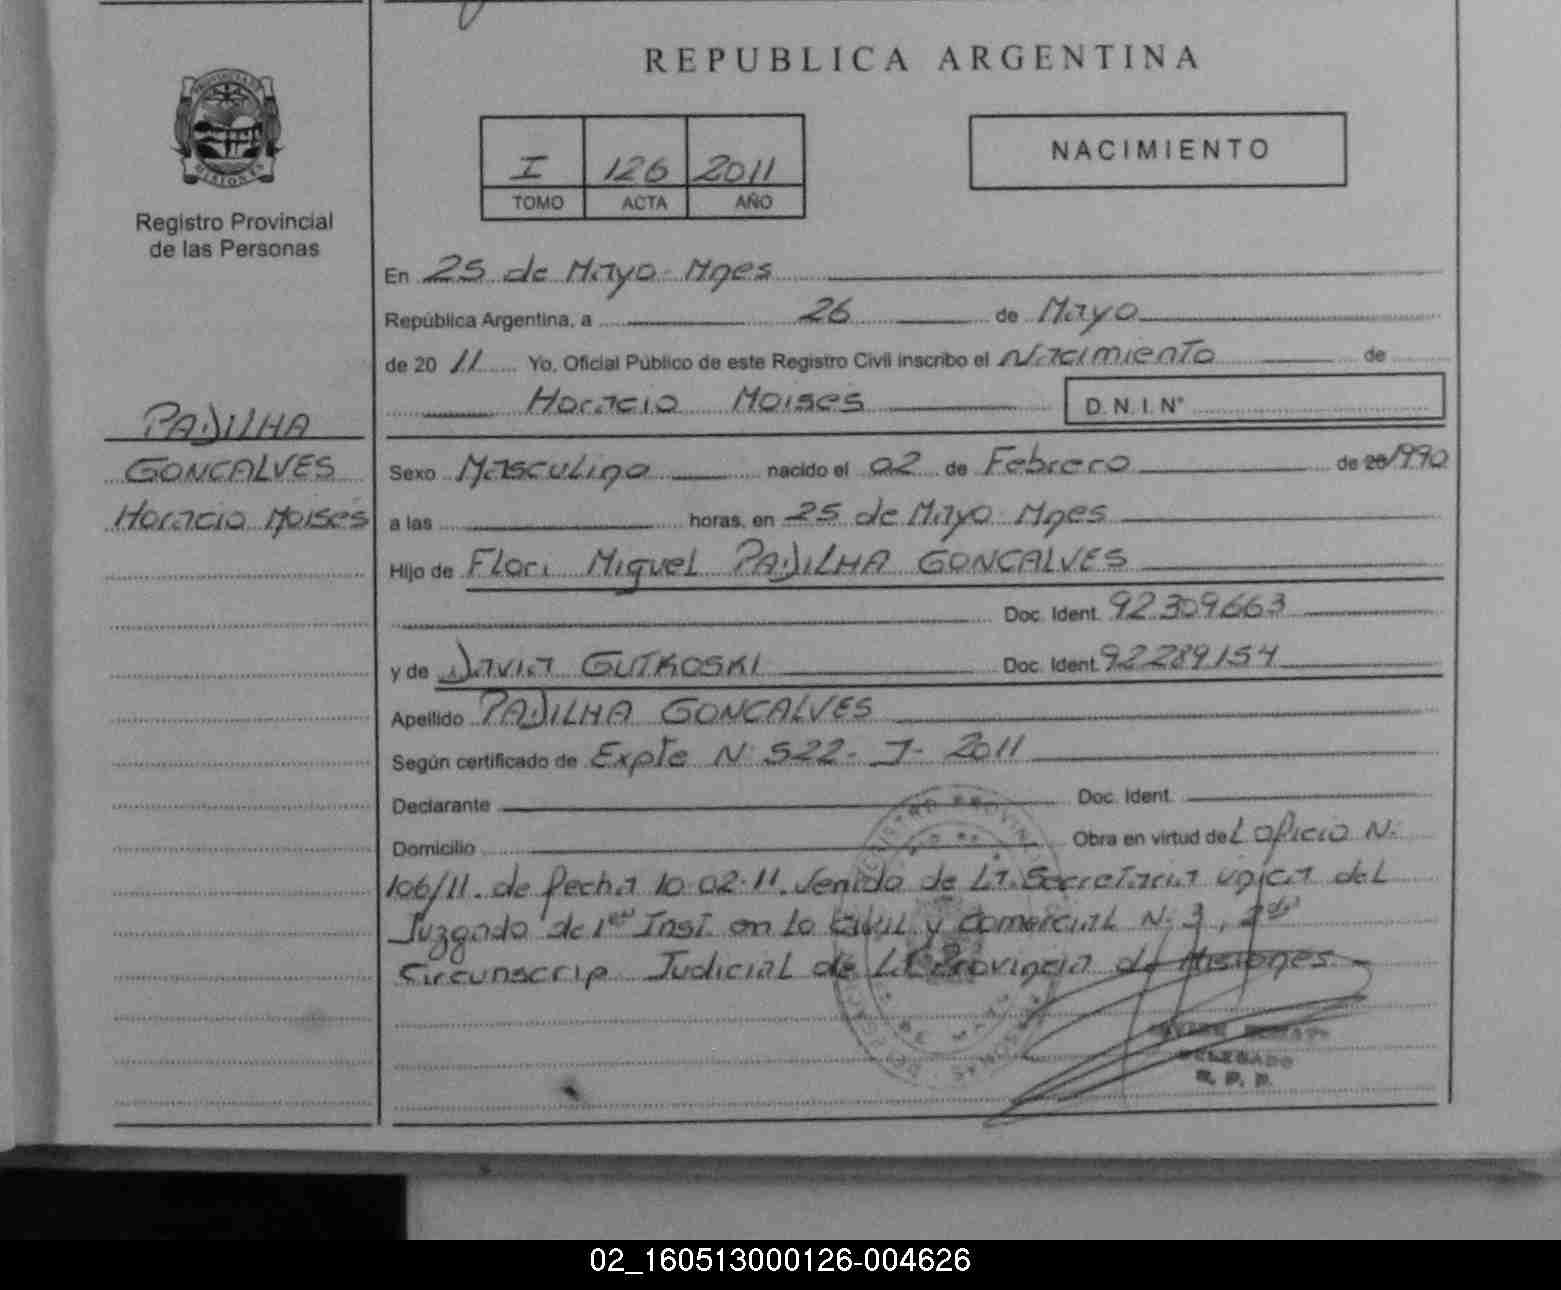 REPUBLICA ARGENTINA
PROVINCIA DE
MISIONES
Registro Provincial
de las Personas
I 126 2011
TOMO ACTA AÑO
NACIMIENTO
En 25 de Mayo - Mnes
República Argentina, a 26 de Mayo
de 20 11 Yo, Oficial Público de este Registro Civil inscribo el Nacimiento de
Horacio Moises D. N. I. N°
PADILHA
GONCALVES
Horacio Moises
Sexo Masculino nacido el 02 de Febrero de 20 1990
a las horas, en 25 de Mayo - Mnes
Hijo de Flori Miguel PADILHA GONCALVES
Doc. Ident. 92309663
y de GUTKOSKI Doc. Ident. 92289154
Apellido PADILHA GONCALVES
Según certificado de Expte N° 522- J- 2011
Declarante Doc. Ident.
Domicilio Obra en virtud de L oficio N°
106/11. de fecha 10.02.11. Venido de La Secretaria unica del
Juzgado de 1era Inst. en lo Civil y Comercial N° 3, 2da
Circunscrip Judicial de La Provincia de Misiones.
DELEGADO
R. P. P.
02_160513000126-004626